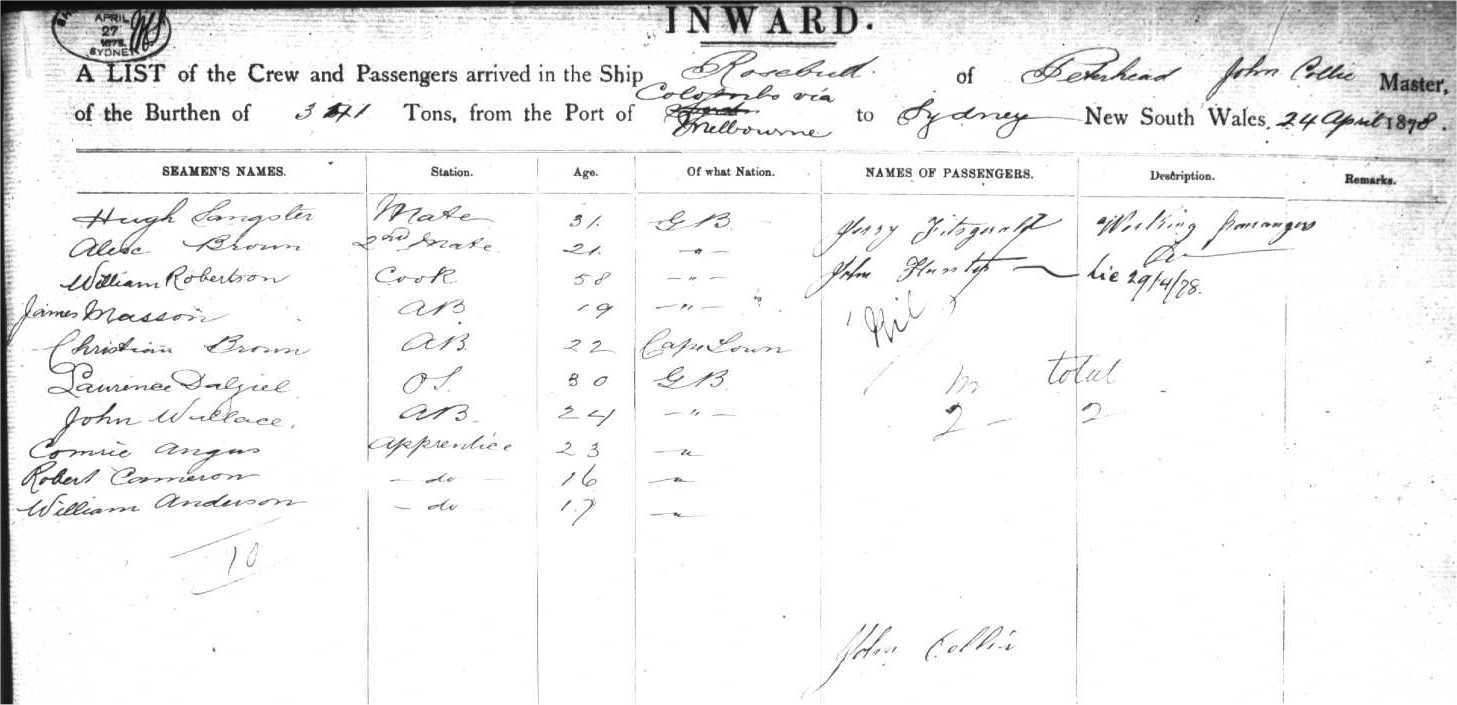 APRIL
27
1878
SYDNEY
INWARD.
A LIST of the Crew and Passengers arrived in the Ship Rosebud of Peterhead John Collie Master,
of the Burthen of 341 Tons, from the Port of Colombo via Melbourne to Sydney New South Wales, 24 April 1878.
SEAMEN'S NAMES. Station. Age. Of what Nation. NAMES OF PASSENGERS. Description. Remarks.
Hugh Sangster Mate 31. GB Jerry Fitzgerald Working passengers
Alexr Brown 2nd Mate 21. -"- Do
William Robertson Cook 58 -"- John Hunter Lic 29/4/78.
James Masson AB 19 -"- Nil
Christian Brown AB 22 Cape Town
Laurence Dalziel OS. 30 GB m total
John Wallace. AB. 24 -"- 2 - 2
Comrie Angus Apprentice 23 -"-
Robert Cameron - do - 16 -"-
William Anderson - do - 17 -"-
10
John Collie